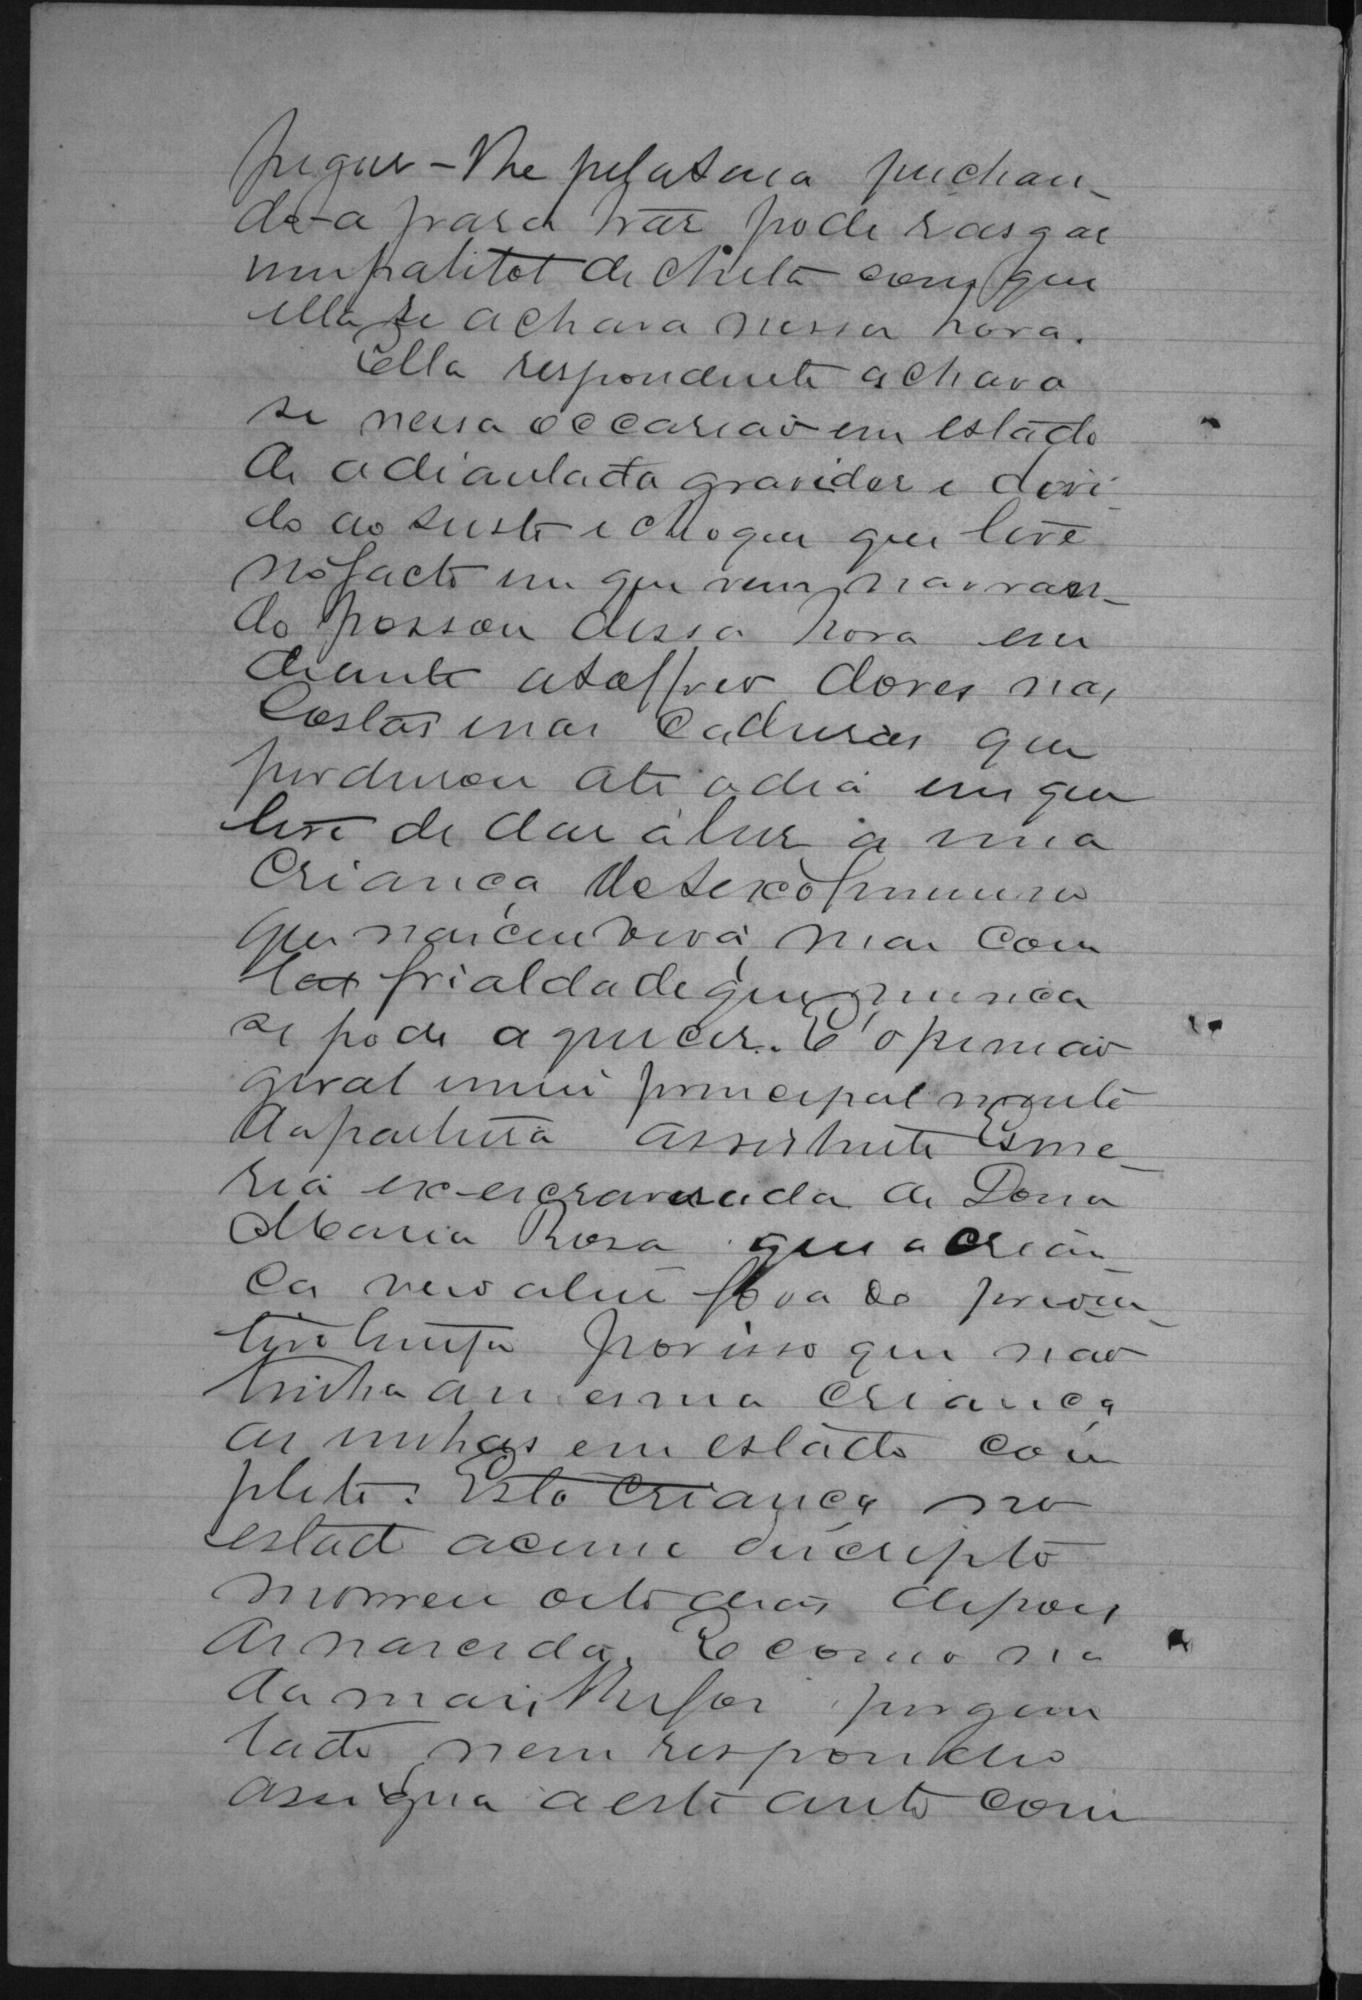 pegar-lhe pela saia puchan-
do-a para traz pode rasgar
um palitot de chita com que
ella se achava nessa hora.
Ella respondente achava
se nessa occasião em estado
de adiantada gravidez e devi-
do ao susto e choque que teve
no facto em que vem narran-
do passou dessa hora em
diante a soffrer dores nas
costas e nas cadeiras que
perdurou até o dia em que
teve de dar á luz a uma
criança do sexo feminino
que nasceu viva, mas com
tal frialdade que nunca
se pode aquecer. E' opinião
geral e mui principalmente
da parteira assistente Esme-
ria ex-escravisada de Dona
Maria Rosa que a crian-
ça veio a luz fora do
por isso que não
tinha a mesma criança
as unhas em estado com
pleto. Esta criança no
estado acima descripto
morreu oito dias depois
de nascida. E como na
da mais lhe foi pergun
tado nem respondeu
assigna a este auto com